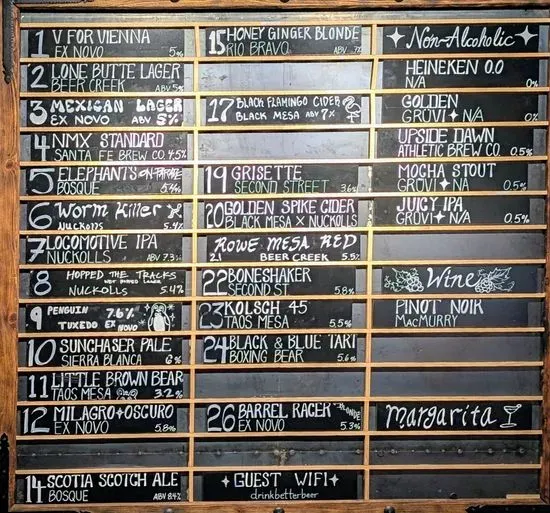 1 V FOR VIENNA
EX NOVO 5%
2 LONE BUTTE LAGER
BEER CREEK ABV 5%
3 MEXICAN LAGER
EX NOVO ABV 5%
4 NMX STANDARD
SANTA FE BREW CO. 4.5%
5 ELEPHANTS ON PARADE
BOSQUE 5.4%
6 Worm Killer
Nuckolls 5.4%
7 LOCOMOTIVE IPA
NUCKOLLS ABV 7.3%
8 HOPPED THE TRACKS
HOPPED LAGER
NUCKOLLS 5.4%
9 PENGUIN 7.6%
TUXEDO EX NOVO
10 SUNCHASER PALE
SIERRA BLANCA 6%
11 LITTLE BROWN BEAR
TAOS MESA 3.2%
12 MILAGRO OSCURO
EX NOVO 5.8%
14 SCOTIA SCOTCH ALE
BOSQUE ABV 8.4%
15 HONEY GINGER BLONDE
RIO BRAVO ABV 7%
17 BLACK FLAMINGO CIDER
BLACK MESA ABV 7%
19 GRISETTE
SECOND STREET 3.6%
20 GOLDEN SPIKE CIDER
BLACK MESA X NUCKOLLS
ROWE MESA RED
21 BEER CREEK 5.5%
22 BONESHAKER
SECOND ST 5.8%
23 KOLSCH 45
TAOS MESA 5.5%
24 BLACK & BLUE TART
BOXING BEAR 5.6%
26 BARREL RACER BLONDE
EX NOVO 5.3%
GUEST WIFI
drinkbetterbeer
Non-Alcoholic
HEINEKEN 0.0
N/A 0%
GOLDEN
GRÜVI N/A 0%
UPSIDE DAWN
ATHLETIC BREW CO. 0.5%
MOCHA STOUT
GRÜVI NA 0.5%
JUICY IPA
GRÜVI N/A 0.5%
Wine
PINOT NOIR
MACMURRY
Margarita